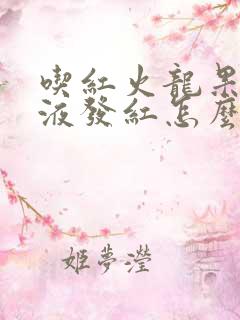 喫紅火龍果
液發紅怎麼
姬夢瀅